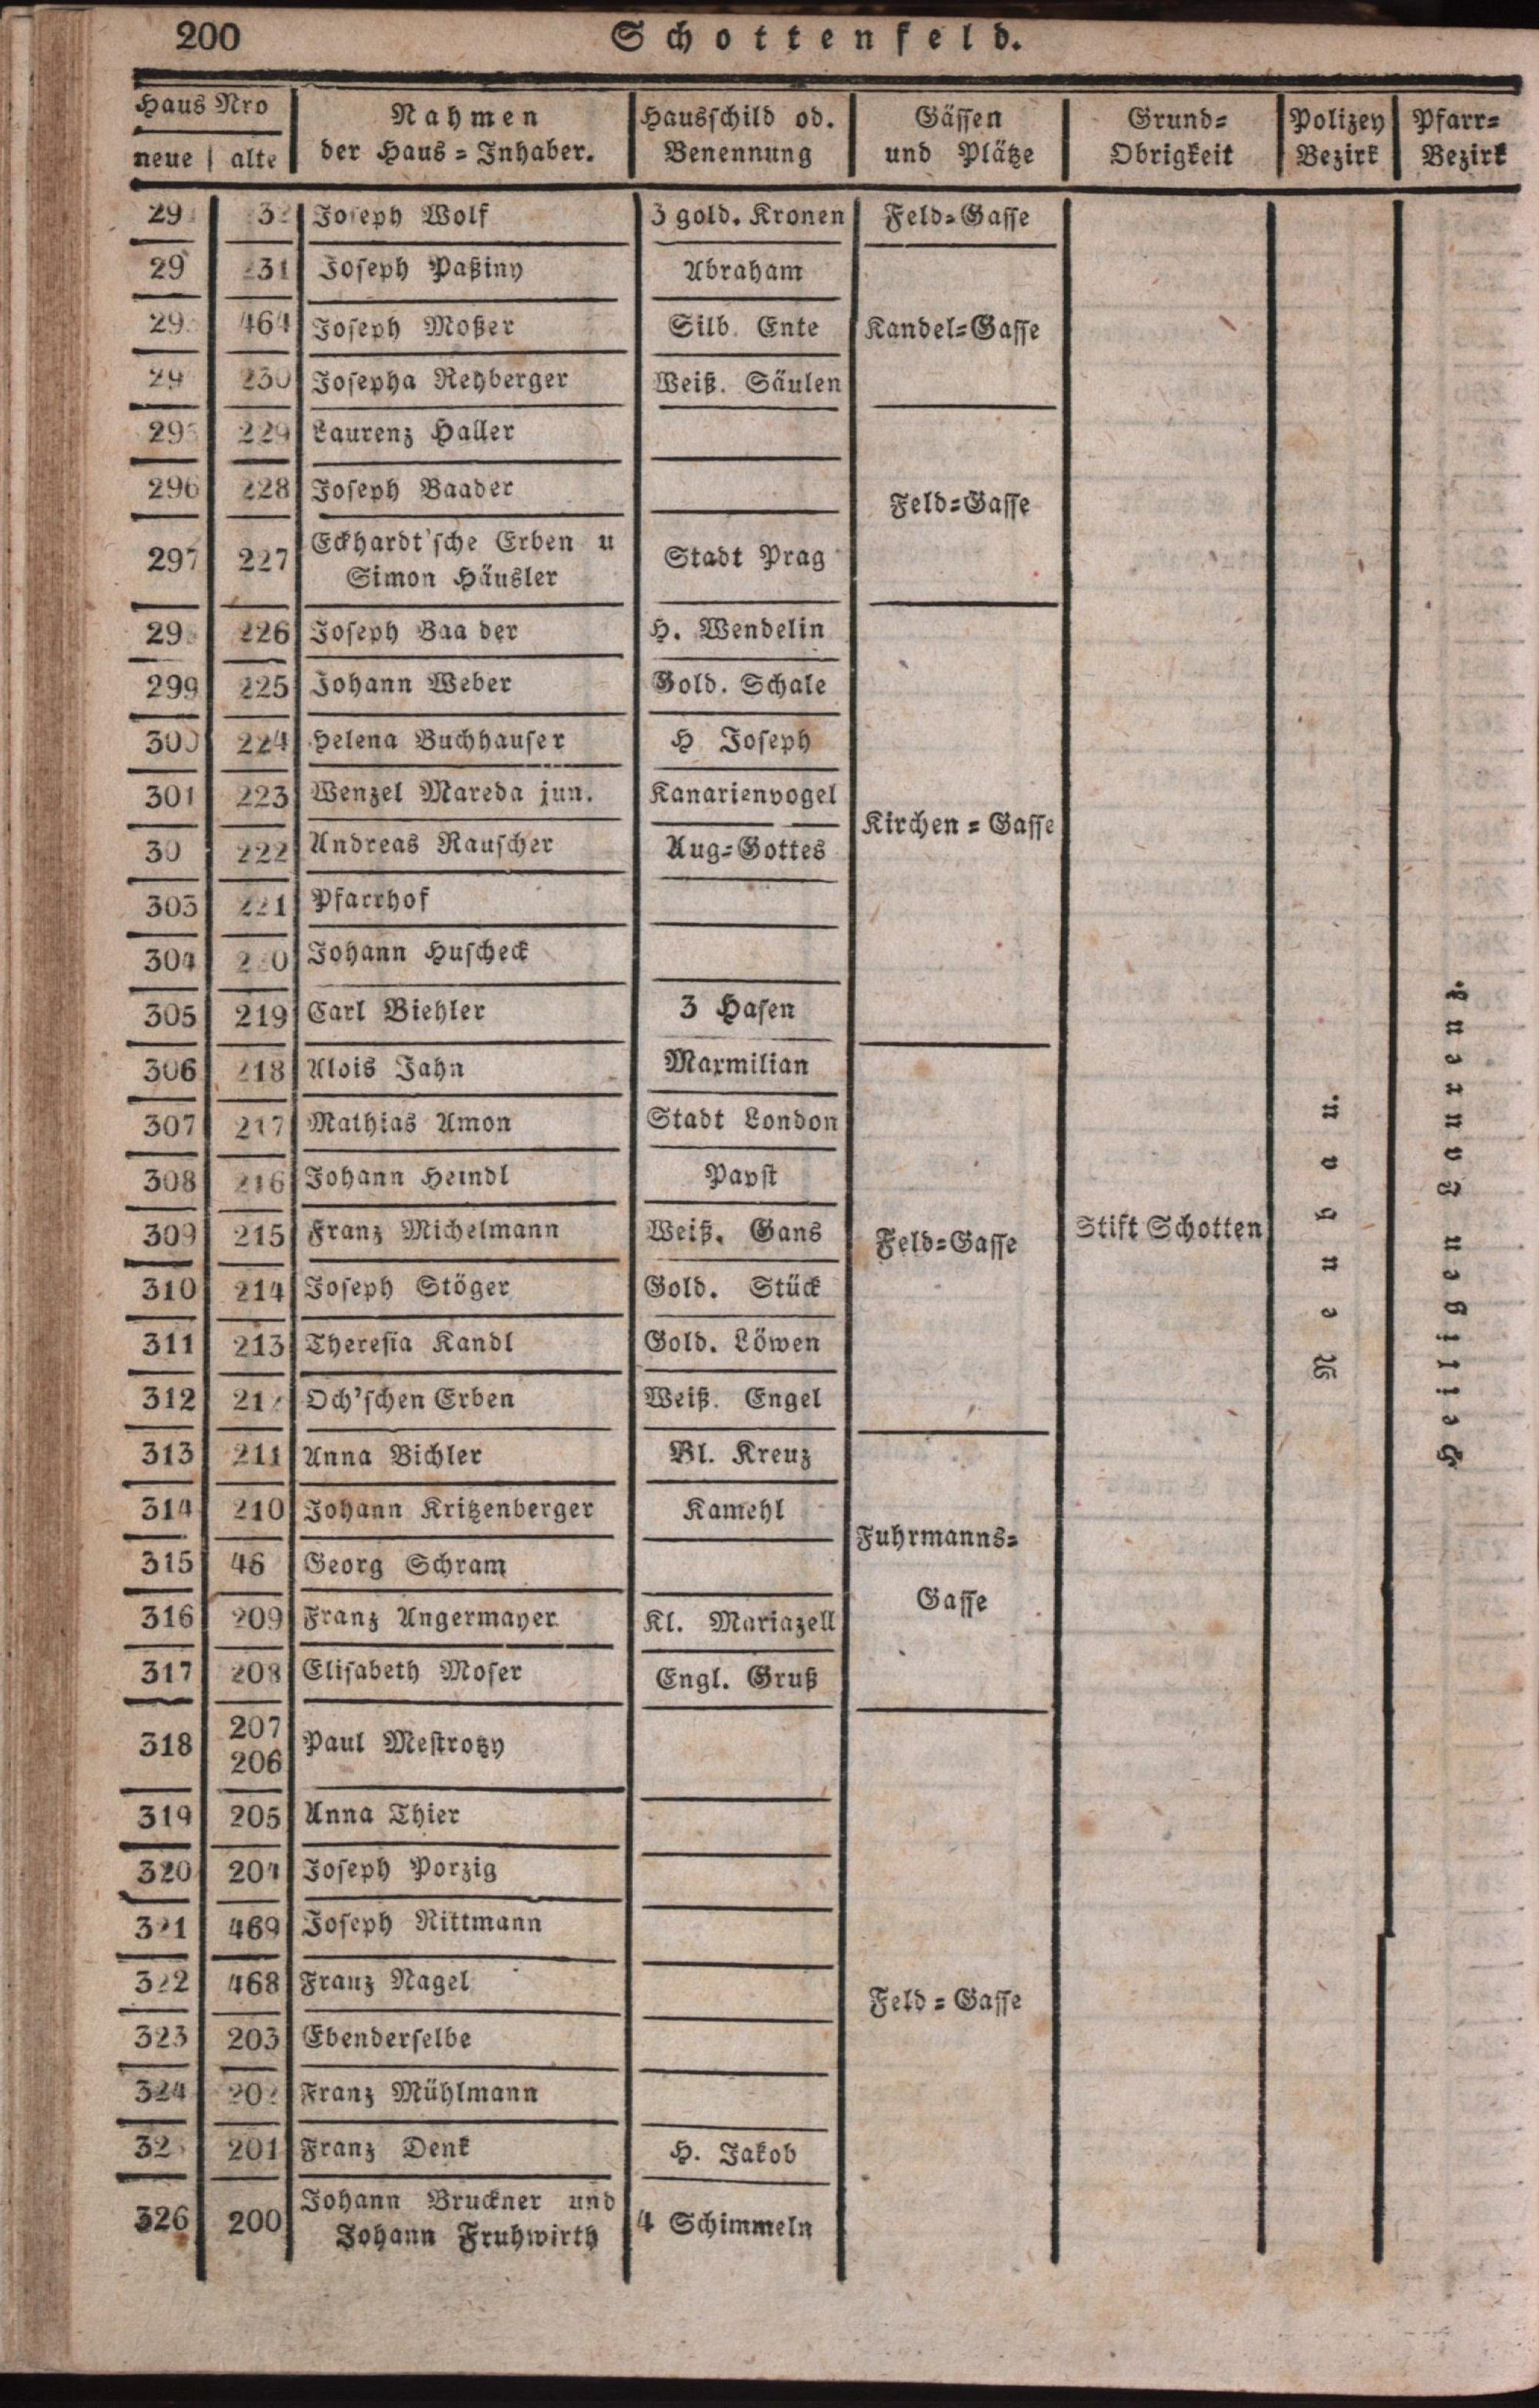 200
Schottenfeld.
Haus Nro
neue | alte
Nahmen
der Haus=Inhaber.
Hausschild od.
Benennung
Gässen
und Plätze
Grund=
Obrigkeit
Polizey
Bezirk
Pfarr=
Bezirk
29 Joseph Wolf 3 gold. Kronen Feld=Gasse
29 231 Joseph Paßiny Abraham
29 464 Joseph Moßer Silb. Ente Kandel=Gasse
29 230 Josepha Reyberger Weiß. Säulen
295 229 Laurenz Haller
296 228 Joseph Baader Feld=Gasse
297 227 Eckhardt'sche Erben u
Simon Häusler Stadt Prag
29 226 Joseph Baa der H. Wendelin
299 225 Johann Weber Gold. Schale
300 224 Helena Buchhauser H Joseph
301 223 Wenzel Mareda jun. Kanarienvogel
Kirchen=Gasse
30 222 Andreas Rauscher Aug=Gottes
303 221 Pfarrhof
304 2 0 Johann Huscheck
305 219 Carl Biehler 3 Hasen
306 218 Alois Jahn Maxmilian
307 217 Mathias Amon Stadt London
308 216 Johann Heindl Papst
309 215 Franz Michelmann Weiß. Gans Feld=Gasse Stift Schotten
310 214 Joseph Stöger Gold. Stück
311 213 Theresia Kandl Gold. Löwen
312 21 Och'schen Erben Weiß. Engel
313 211 Anna Bichler Bl. Kreuz
314 210 Johann Kritzenberger Kamehl
Fuhrmanns=
315 46 Georg Schram
Gasse
316 209 Franz Angermayer Kl. Mariazell
317 208 Elisabeth Moser Engl. Gruß
318 207
206 Paul Mestrozy
319 205 Anna Thier
320 204 Joseph Porzig
321 469 Joseph Rittmann
322 468 Franz Nagel
Feld=Gasse
323 203 Ebenderselbe
324 202 Franz Mühlmann
32 201 Franz Denk H. Jakob
326 200 Johann Bruckner und
Johann Fruhwirth 4 Schimmeln
Neubau.
Heiligen Laurenz.